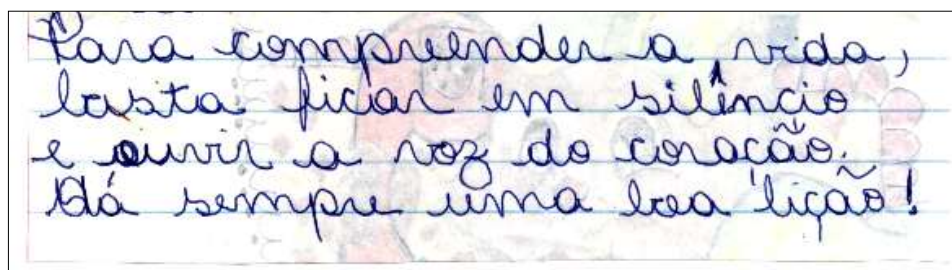 Para compreender a vida,
basta ficar em silêncio
e ouvir a voz do coração.
Há sempre uma boa lição!